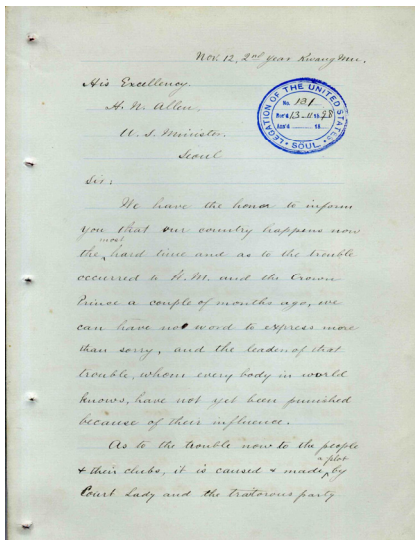 Nov. 12, 2nd year Kwang Mu.
His Excellency.
H. N. Allen.
U. S. Minister.
Seoul
LEGATION OF THE UNITED STATES
No. 131
Rec'd 13-11-1898
Ans'd 18
SEOUL
Sir:
We have the honor to inform
you that our country happens now
the most hard time and as to the trouble
occurred to H. M. and the Crown
Prince a couple of months ago, we
can have not word to express more
than sorry, and the leader of that
trouble, whom every body in world
knows, have not yet been punished
because of their influence.
As to the trouble now to the people
& their clubs, it is caused & made a plot by
Court Lady and the traitorous party